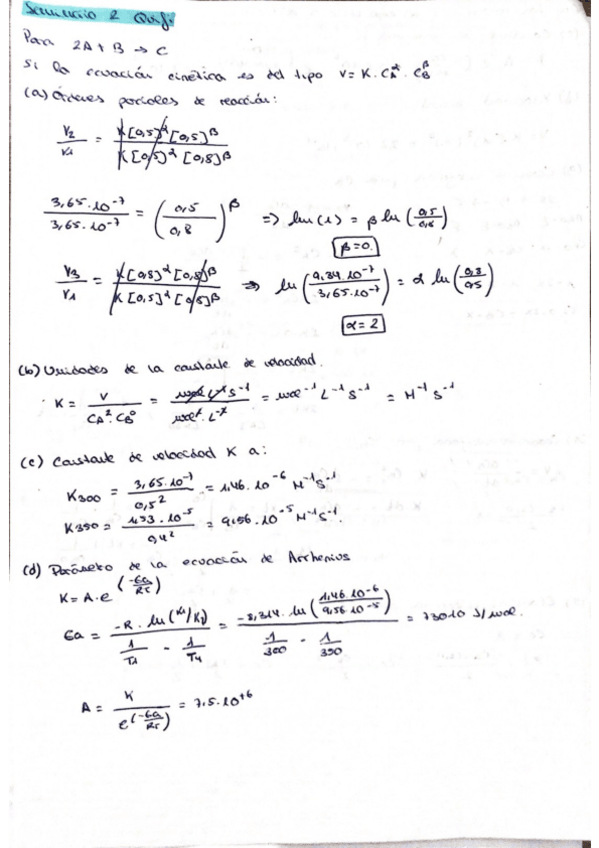 Seminario 2 Quífi
Para 2A + B → C
Si la ecuación cinética es del tipo V = K · C_A^α · C_B^β
(a) Órdenes parciales de reacción:
V₂/V₁ = K[0,5]^α [0,5]^β / K[0,5]^α [0,8]^β
3,65·10⁻⁷ / 3,65·10⁻⁷ = (0,5/0,8)^β ⇒ ln(1) = β ln(0,5/0,8)
β=0
V₃/V₁ = K[0,8]^α [0,8]^β / K[0,5]^α [0,5]^β ⇒ ln(9,34·10⁻⁷ / 3,65·10⁻⁷) = α ln(0,8/0,5)
α=2
(b) Unidades de la constante de velocidad.
K = V / C_A² · C_B⁰ = mol L⁻¹ s⁻¹ / mol² · L⁻² = mol⁻¹ L⁻¹ s⁻¹ = M⁻¹ s⁻¹
(c) Constante de velocidad K a:
K300 = 3,65·10⁻⁷ / 0,5² = 1,46·10⁻⁶ M⁻¹s⁻¹
K350 = 1,53·10⁻⁵ / 0,4² = 9,56·10⁻⁵ M⁻¹s⁻¹.
(d) Parámetro de la ecuación de Arrhenius
K = A·e^(-Ea/RT)
Ea = -R · ln(K₁/K₂) / (1/T₁ - 1/T₂) = -8,314 · ln(1,46·10⁻⁶ / 9,56·10⁻⁵) / (1/300 - 1/350) = 73010 J/mol.
A = K / e^(-Ea/RT) = 7,5·10⁺⁶